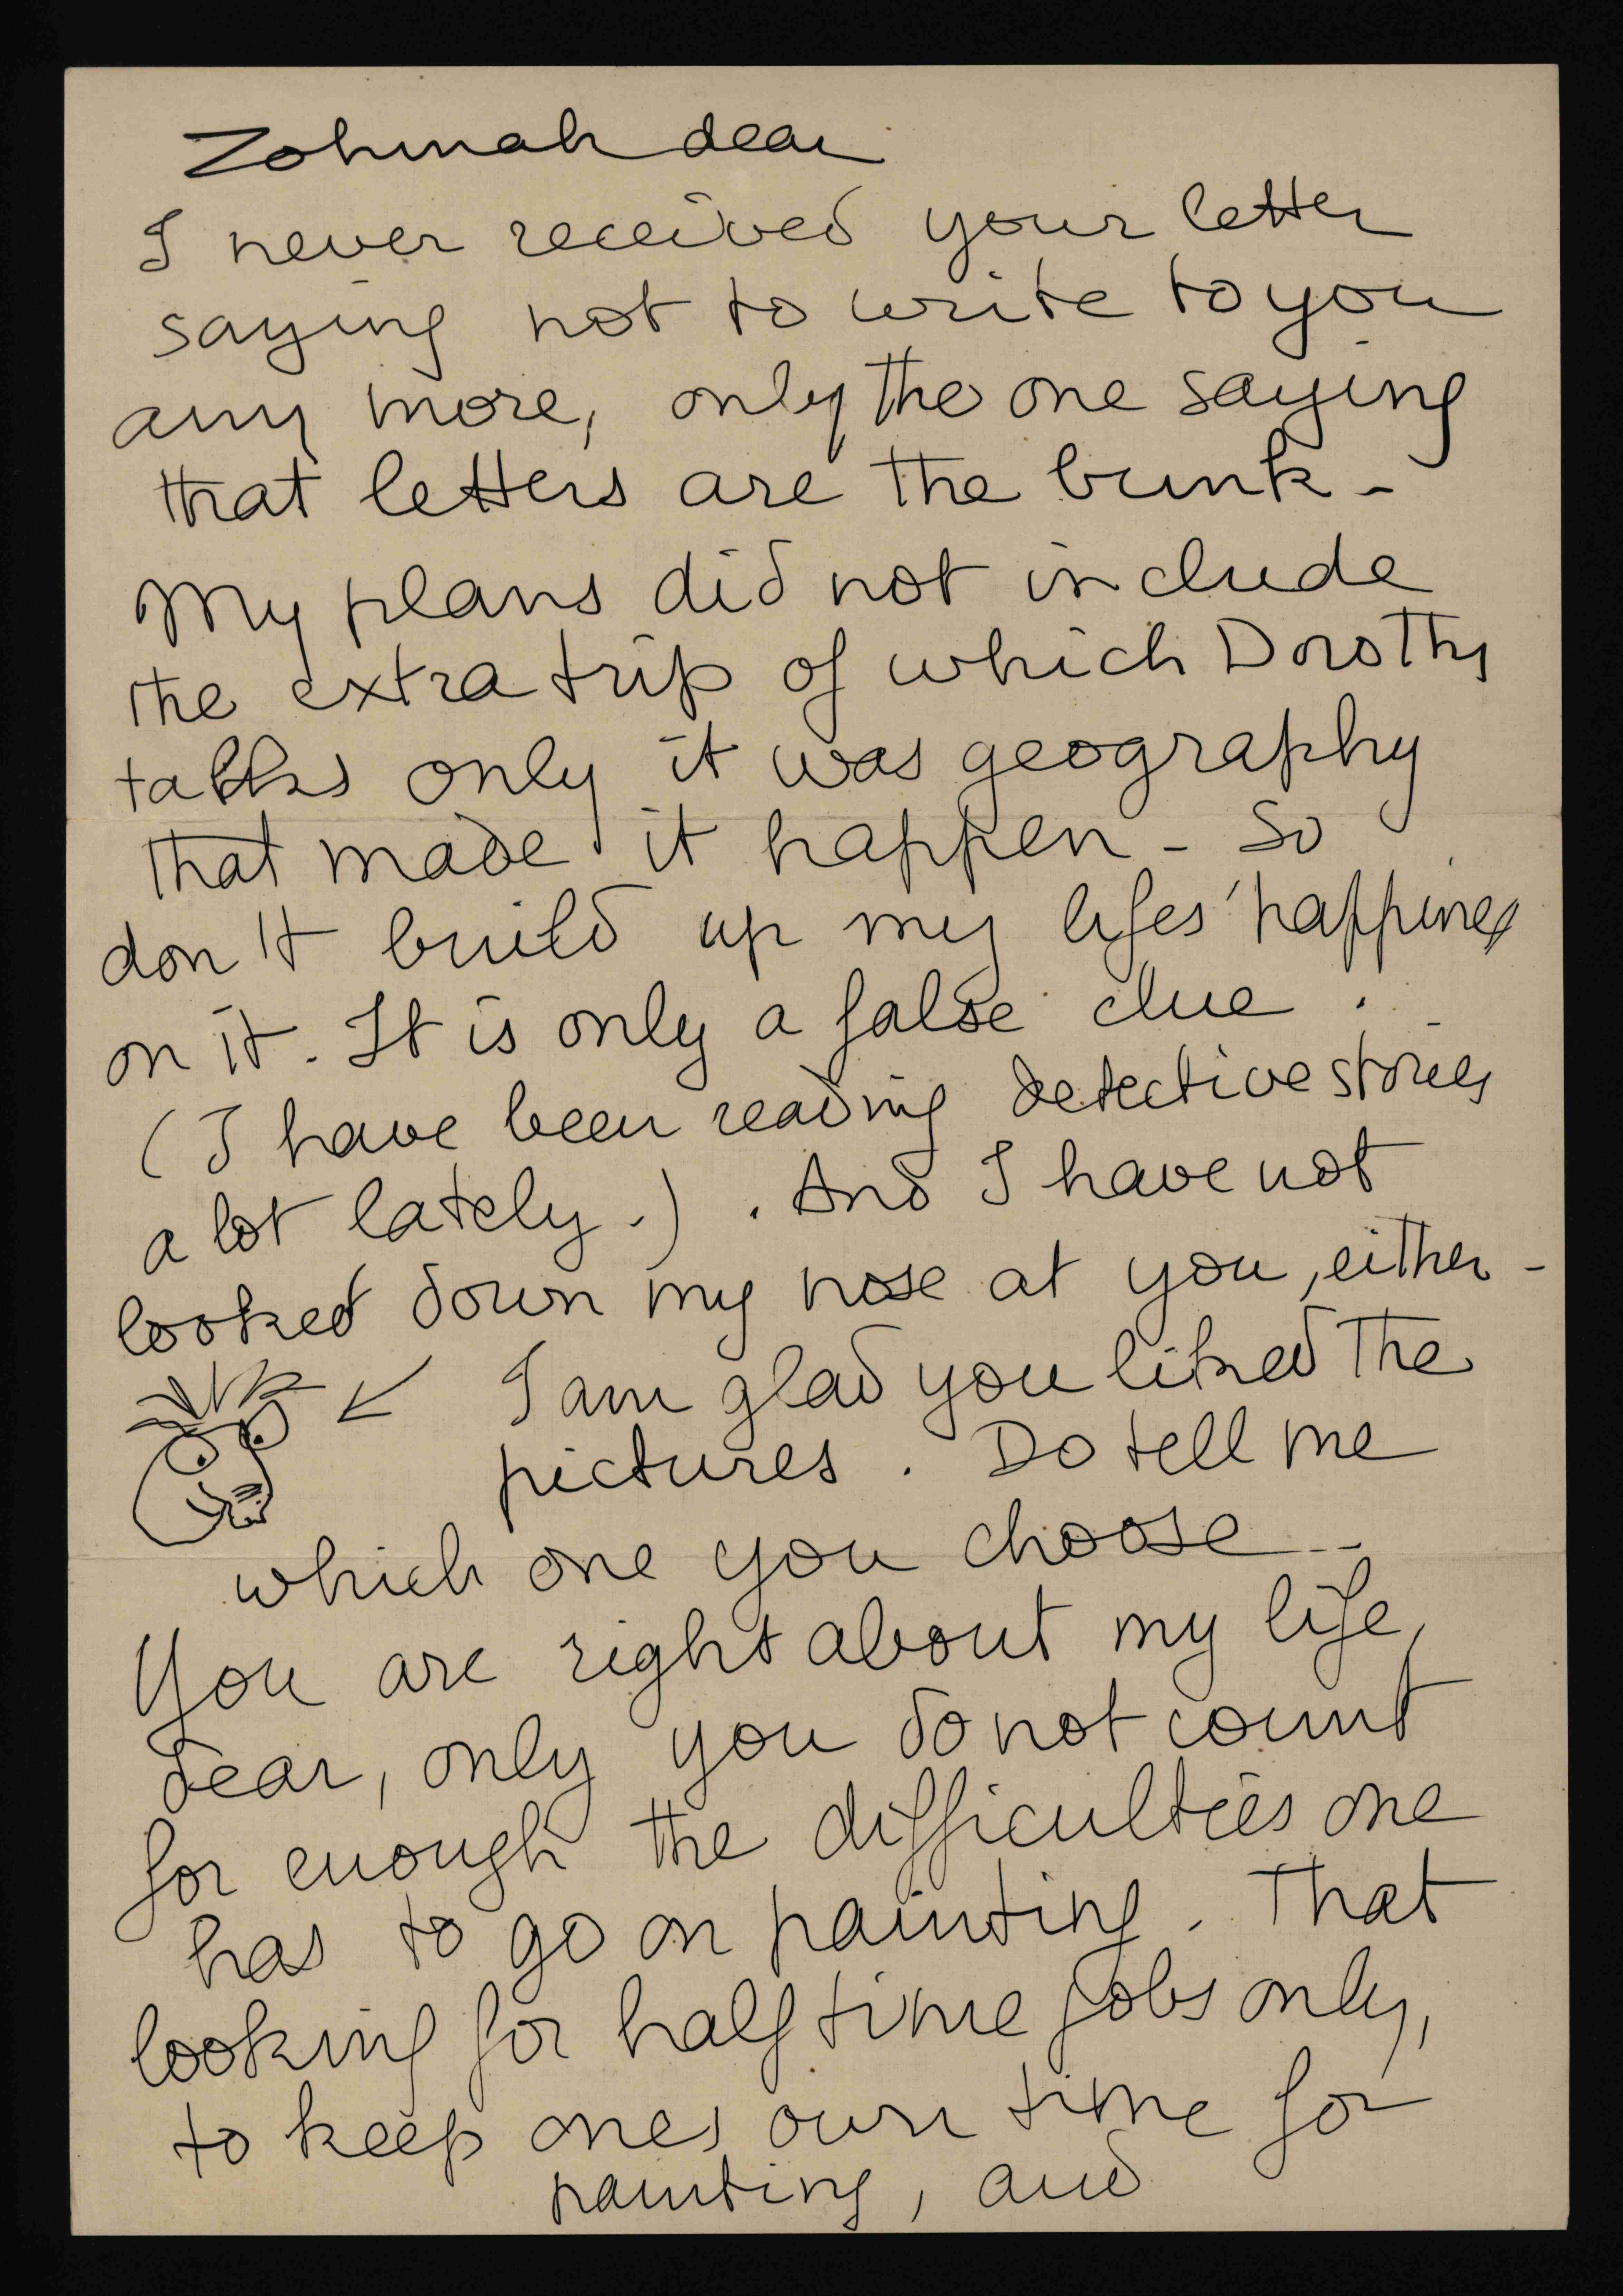 Zohmah dear
I never received your letter
saying not to write to you
any more, only the one saying
that letters are the bunk -
My plans did not include
the extra trip of which Dorothy
talks only it was geography
that made it happen - So
don't build up my lifes' happiness
on it. It is only a false clue.
(I have been reading detective stories
a lot lately.). And I have not
looked down my nose at you, either -
I am glad you liked the
pictures. Do tell me
which one you choose --
You are right about my life,
dear, only you do not count
for enough the difficulties one
has to go on painting. That
looking for half time jobs only,
to keep ones own time for
painting, and